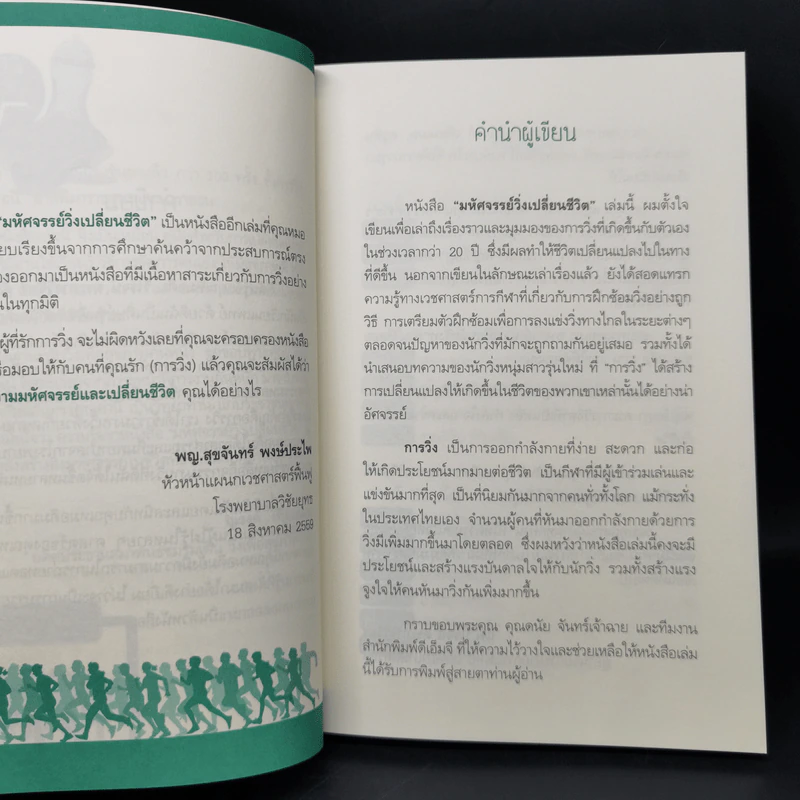 “มหัศจรรย์วิ่งเปลี่ยนชีวิต” เป็นหนังสืออีกเล่มที่คุณหมอ
ยบเรียงขึ้นจากการศึกษาค้นคว้าจากประสบการณ์ตรง
องออกมาเป็นหนังสือที่มีเนื้อหาสาระเกี่ยวกับการวิ่งอย่าง
นในทุกมิติ
ผู้ที่รักการวิ่ง จะไม่ผิดหวังเลยที่คุณจะครอบครองหนังสือ
รือมอบให้กับคนที่คุณรัก (การวิ่ง) แล้วคุณจะสัมผัสได้ว่า
ามมหัศจรรย์และเปลี่ยนชีวิต คุณได้อย่างไร
พญ.สุขจันทร์ พงษ์ประไพ
หัวหน้าแผนกเวชศาสตร์ฟื้นฟู
โรงพยาบาลวิชัยยุทธ
18 สิงหาคม 2559
คำนำผู้เขียน
หนังสือ “มหัศจรรย์วิ่งเปลี่ยนชีวิต” เล่มนี้ ผมตั้งใจ
เขียนเพื่อเล่าถึงเรื่องราวและมุมมองของการวิ่งที่เกิดขึ้นกับตัวเอง
ในช่วงเวลากว่า 20 ปี ซึ่งมีผลทำให้ชีวิตเปลี่ยนแปลงไปในทาง
ที่ดีขึ้น นอกจากเขียนในลักษณะเล่าเรื่องแล้ว ยังได้สอดแทรก
ความรู้ทางเวชศาสตร์การกีฬาที่เกี่ยวกับการฝึกซ้อมวิ่งอย่างถูก
วิธี การเตรียมตัวฝึกซ้อมเพื่อการลงแข่งวิ่งทางไกลในระยะต่างๆ
ตลอดจนปัญหาของนักวิ่งที่มักจะถูกถามกันอยู่เสมอ รวมทั้งได้
นำเสนอบทความของนักวิ่งหนุ่มสาวรุ่นใหม่ ที่ “การวิ่ง” ได้สร้าง
การเปลี่ยนแปลงให้เกิดขึ้นในชีวิตของพวกเขาเหล่านั้นได้อย่างน่า
อัศจรรย์
การวิ่ง เป็นการออกกำลังกายที่ง่าย สะดวก และก่อ
ให้เกิดประโยชน์มากมายต่อชีวิต เป็นกีฬาที่มีผู้เข้าร่วมเล่นและ
แข่งขันมากที่สุด เป็นที่นิยมกันมากจากคนทั่วทั้งโลก แม้กระทั่ง
ในประเทศไทยเอง จำนวนผู้คนที่หันมาออกกำลังกายด้วยการ
วิ่งมีเพิ่มมากขึ้นมาโดยตลอด ซึ่งผมหวังว่าหนังสือเล่มนี้คงจะมี
ประโยชน์และสร้างแรงบันดาลใจให้กับนักวิ่ง รวมทั้งสร้างแรง
จูงใจให้คนหันมาวิ่งกันเพิ่มมากขึ้น
กราบขอบพระคุณ คุณดนัย จันทร์เจ้าฉาย และทีมงาน
สำนักพิมพ์ดีเอ็มจี ที่ให้ความไว้วางใจและช่วยเหลือให้หนังสือเล่ม
นี้ได้รับการพิมพ์สู่สายตาท่านผู้อ่าน